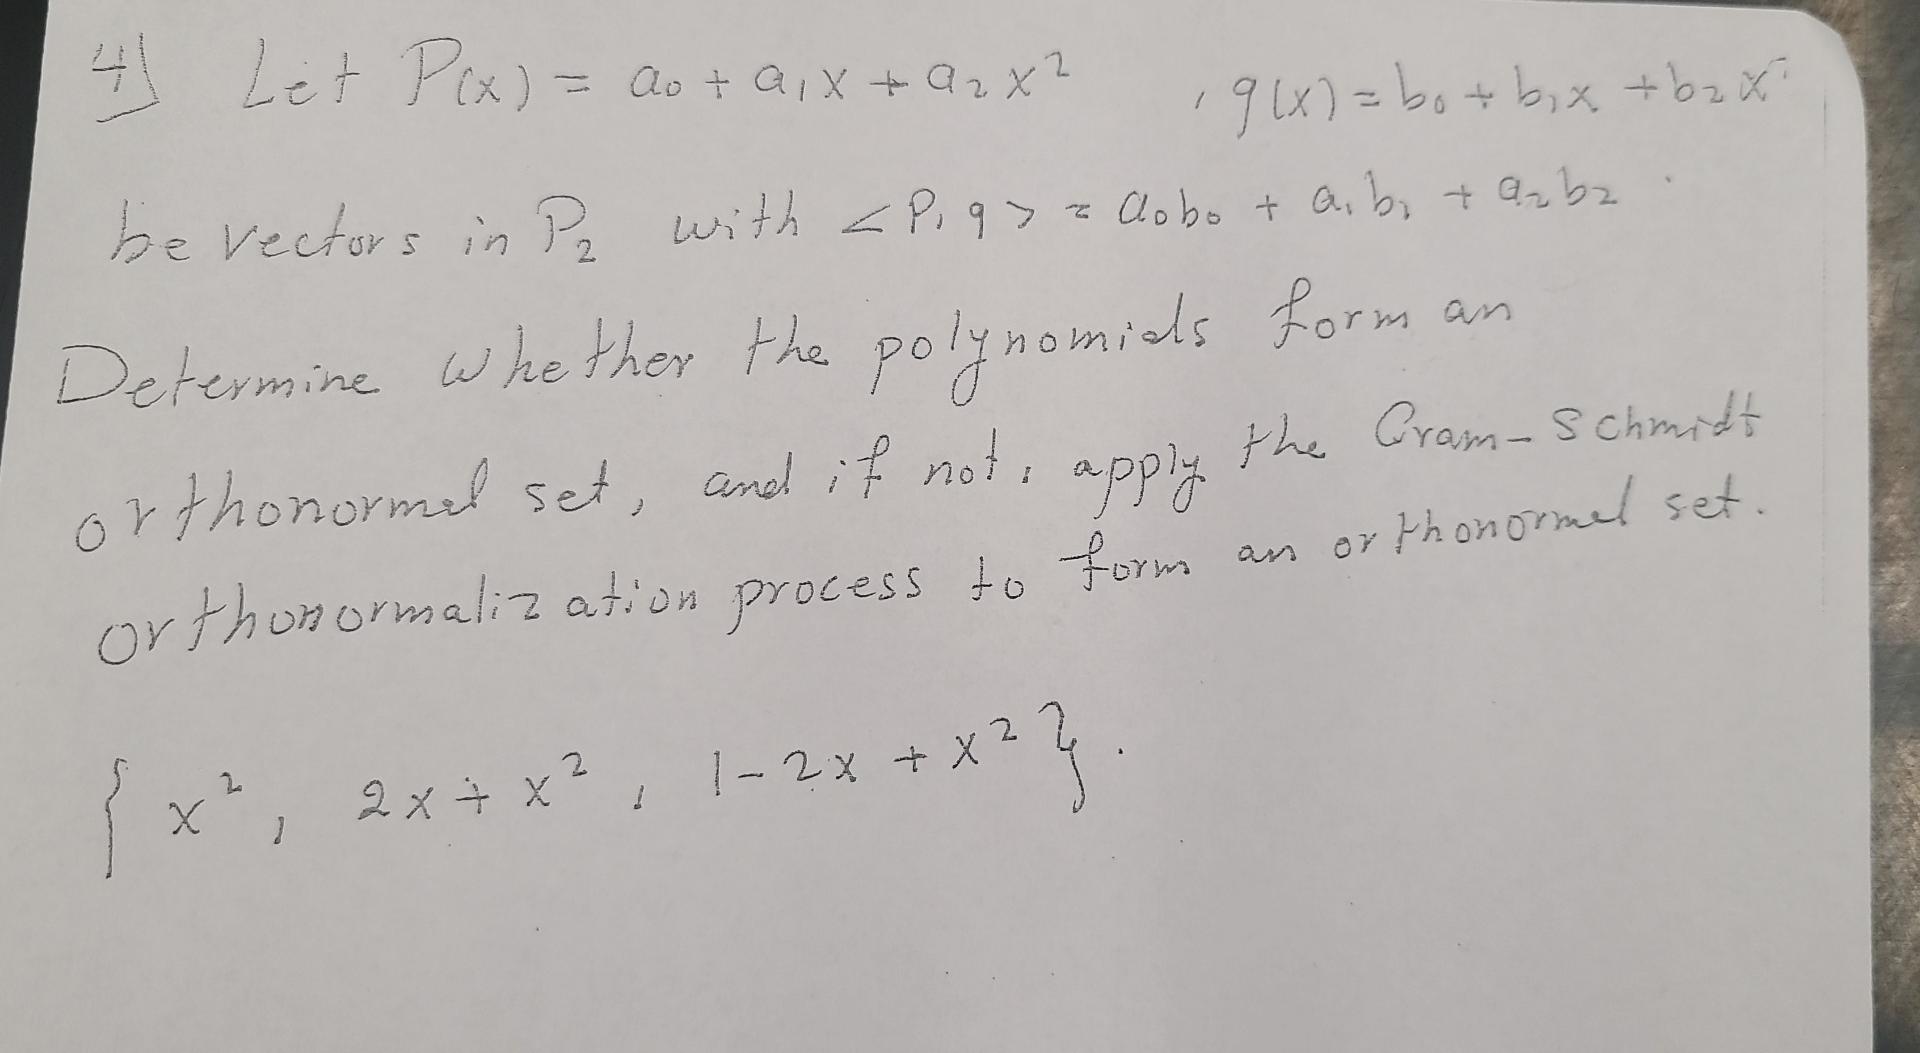 4) Let P(x) = a₀ + a₁x + a₂x² , q(x) = b₀ + b₁x + b₂x²
be vectors in P₂ with <P, q> = a₀b₀ + a₁b₁ + a₂b₂.
Determine whether the polynomials form an
orthonormal set, and if not, apply the Gram-Schmidt
orthonormalization process to form an orthonormal set.
{x², 2x + x², 1 - 2x + x²}.